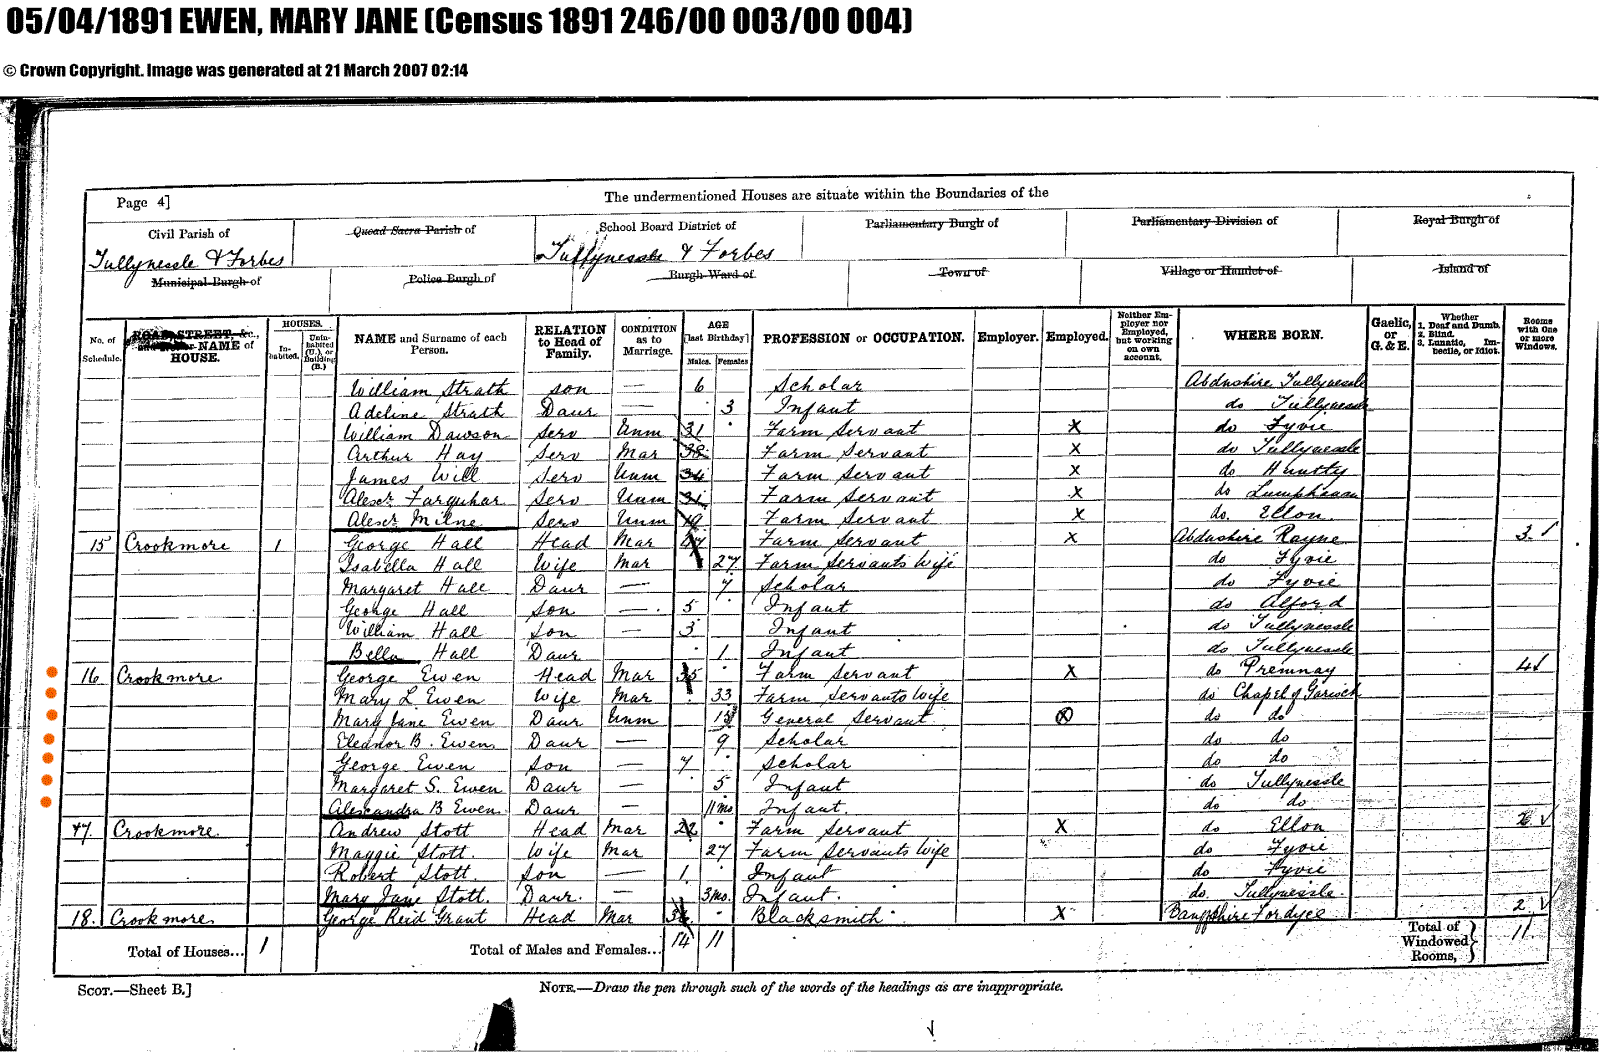 05/04/1891 EWEN, MARY JANE (Census 1891 246/00 003/00 004)
© Crown Copyright. Image was generated at 21 March 2007 02:14
Page 4] The undermentioned Houses are situate within the Boundaries of the
Civil Parish of Quoad Sacra Parish of School Board District of Parliamentary Burgh of Parliamentary Division of Royal Burgh of
Tullynessle & Forbes Tullynessle & Forbes
Municipal Burgh of Police Burgh of Burgh Ward of Town of Village or Hamlet of Island of
No. of Schedule. ROAD, STREET, &c., and NAME of HOUSE. HOUSES. Inhabited. Uninhabited (U.), or Building (B.) NAME and Surname of each Person. RELATION to Head of Family. CONDITION as to Marriage. AGE [last Birthday] Males. Females. PROFESSION or OCCUPATION. Employer. Employed. Neither Employer nor Employed, but working on own account. WHERE BORN. Gaelic, or G. & E. Whether 1. Deaf and Dumb. 2. Blind. 3. Lunatic, Imbecile, or Idiot. Rooms with One or more Windows.
William Strath son — 6 Scholar Abdnshire Tullynessle
Adeline Strath Daur — 3 Infant do Tullynessle
William Dawson Serv Unm 21 Farm Servant X do Fyvie
Arthur Hay Serv Mar 38 Farm Servant X do Tullynessle
James Will Serv Unm 34 Farm Servant X do Huntly
Alexr. Farquhar Serv Unm 21 Farm Servant X do Lumphanan
Alexr. Milne Serv Unm 19 Farm Servant X do. Ellon
15 Crookmore 1 George Hall Head Mar Farm Servant X Abdnshire Rayne 3 /
Isabella Hall Wife Mar 27 Farm Servants Wife do Fyvie
Margaret Hall Daur — 7 Scholar do Fyvie
George Hall Son — 5 Infant do Alford
William Hall Son — 3 Infant do Tullynessle
Bella Hall Daur 1 Infant do Tullynessle
16 Crookmore George Ewen Head Mar 35 Farm Servant X do Premnay 4 /
Mary L Ewen Wife Mar 33 Farm Servants Wife do Chapel of Garioch
Mary Jane Ewen Daur Unm 13 General Servant X do do
Eleanor B. Ewen Daur — 9 Scholar do do
George Ewen Son — 7 Scholar do do
Margaret S. Ewen Daur — 5 Infant do Tullynessle
Alexandra B Ewen Daur — 11 mo Infant. do do
17. Crookmore. Andrew Stott Head Mar 22 Farm Servant X do Ellon 2 ✓
Maggie Stott. Wife Mar 27 Farm Servants Wife do Fyvie
Robert Stott. Son — 1 Infant do Fyvie
Mary Jane Stott. Daur. — 3 mo. Infant. do. Tullynessle
18. Crookmore George Reid Grant Head Mar Blacksmith X Banffshire Fordyce 2 ✓
Total of Houses... 1 Total of Males and Females... 14 11 Total of Windowed Rooms, 11
SCOT.—Sheet B.] NOTE.—Draw the pen through such of the words of the headings as are inappropriate.